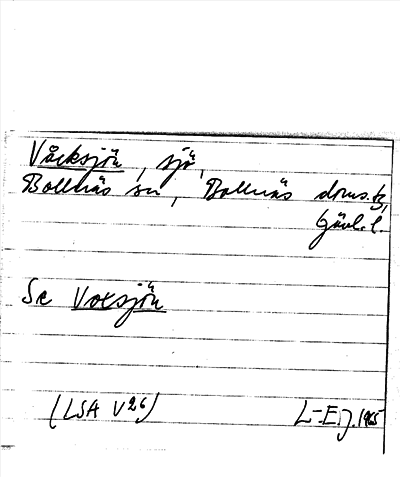 Våcksjön, sjö,
Bollnäs sn, Bollnäs doms.tg,
Gävl.l.
Se Votsjön
(LSA V26) L-E.J. 1965